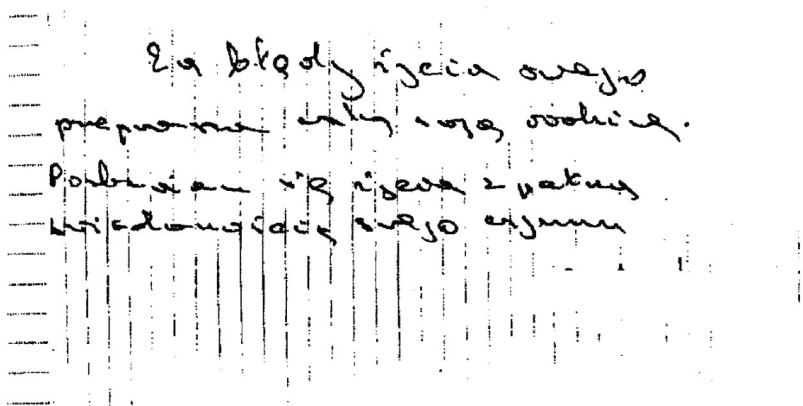 Za błędy życia swego
przepraszam całą swoją rodzinę.
Pozbawiam się życia z pełną
świadomością swego czynu